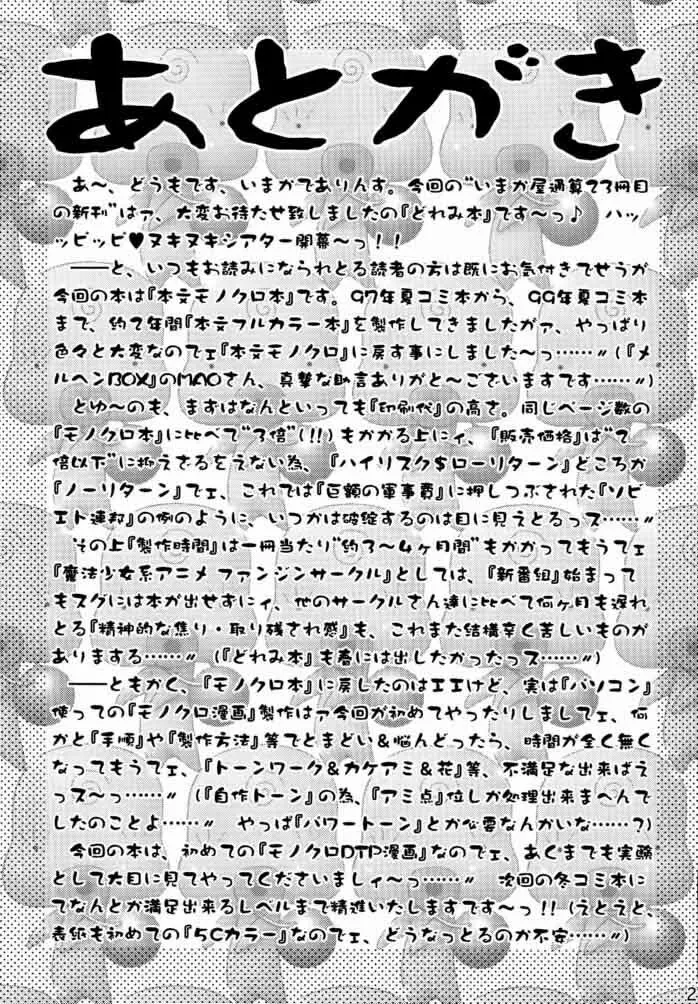 あとがき
あ〜、どうもです、いまかでありんす。今回の"いまか屋通算23冊目
の新刊"はァ、大変お待たせ致しましたの『どれみ本』です〜っ♪ ハッ
ッピッピ♥ヌキヌキシアター開幕〜っ!!
――と、いつもお読みになられとる読者の方は既にお気付きでせうが
今回の本は『本文モノクロ本』です。97年夏コミ本から、99年夏コミ本
まで、約2年間『本文フルカラー本』を製作してきましたがァ、やっぱり
色々と大変なのでェ『本文モノクロ』に戻す事にしました〜っ……〃(『メ
ルヘンBOX』のMAOさん、真摯な助言ありがと〜ございますです……〃)
とゆ〜のも、まずはなんといっても『印刷代』の高さ。同じページ数の
『モノクロ本』に比べて"3倍"(!!)もかかる上にィ、『販売価格』は"2
倍以下"に抑えざるをえない為、『ハイリスク$ローリターン』どころか
『ノーリターン』でェ、これでは『巨額の軍事費』に押しつぶされた『ソビ
エト連邦』の例のように、いつかは破綻するのは目に見えとるっス……〃
その上『製作時間』は一冊当たり"約3〜4ヶ月間"もかかってもうてェ
『魔法少女系アニメ ファンジンサークル』としては、『新番組』始まって
もスグには本が出せずにィ、他のサークルさん達に比べて何ヶ月も遅れ
とる『精神的な焦り・取り残され感』も、これまた結構辛く苦しいものが
ありまする……〃 (『どれみ本』も春には出したかったっス……〃)
――ともかく、『モノクロ本』に戻したのはエエけど、実は『パソコン』
使っての『モノクロ漫画』製作はァ今回が初めてやったりしましてェ、何
かと『手順』や『製作方法』等でとまどい&悩んどったら、時間が全く無く
なってもうてェ、『トーンワーク&カケアミ&花』等、不満足な出来ばえ
っス〜っ……〃 (『自作トーン』の為、『アミ点』位しか処理出来まへんで
したのことよ……〃 やっぱ『パワートーン』とか必要なんかいな……?)
今回の本は、初めての『モノクロDTP漫画』なのでェ、あくまでも実験
として大目に見てやってくださいましィ〜っ……〃 次回の冬コミ本に
てなんとか満足出来るレベルまで精進いたしますです〜っ!!(えとえと、
表紙も初めての『5Cカラー』なのでェ、どうなっとるのか不安……〃)
2